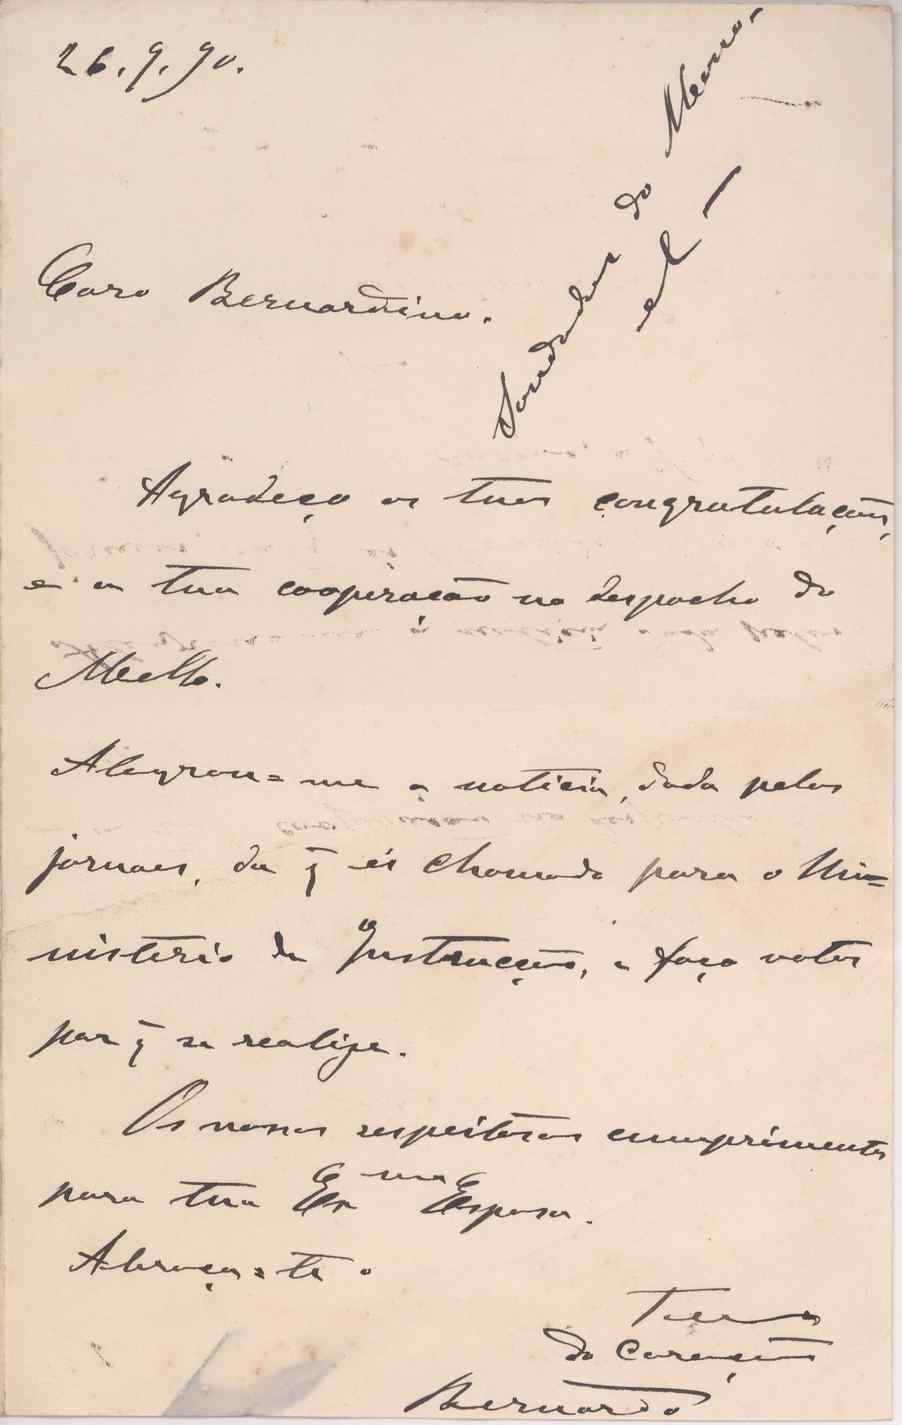 26.9.90.
Saudades do Mano-
el –
Caro Bernardino.
Agradeço as tuas congratulações,
e a tua cooperação no despacho do
Mello.
Alegrou=me a noticia, dada pelos
jornaes, de q̃ és chamado para o Mi=
nisterio da Instrucção, e faço votos
por q̃ se realize.
Os nossos respeitosos cumprimentos
para tua Exma Esposa.
Abraça=te o
Teu
do coração
Bernardo